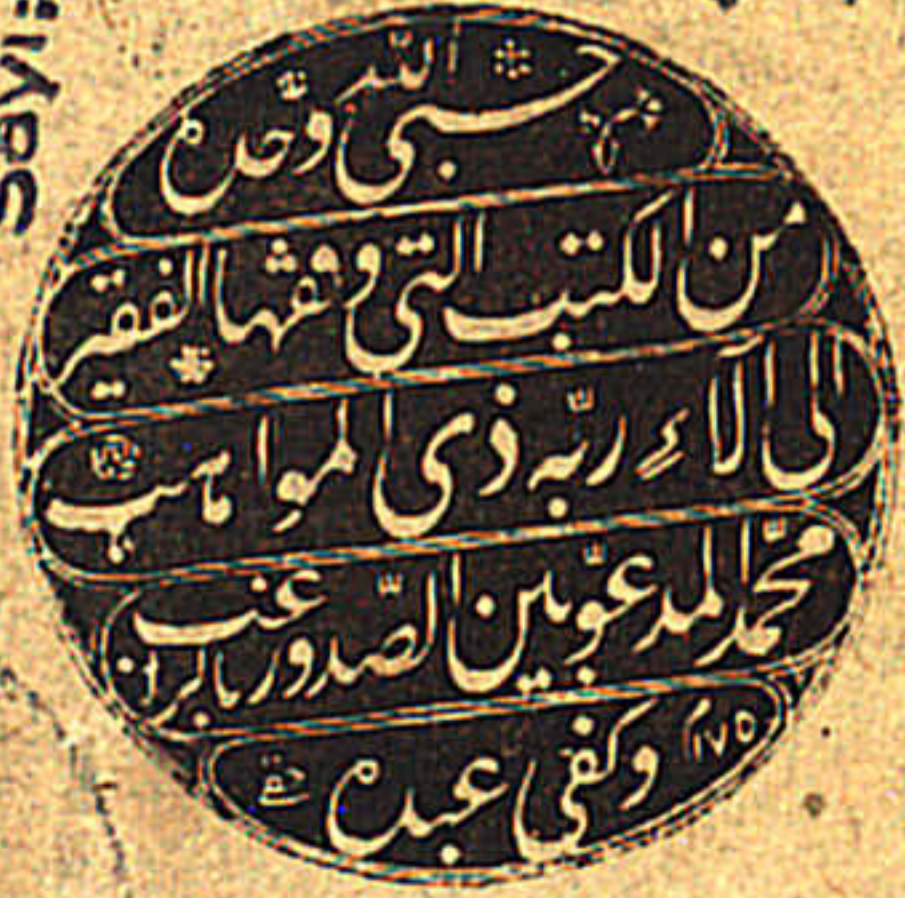 Sayı:
حسبى الله وحده
من الكتب التى وقفها الفقير
الى آلاء ربّه ذى المواهب
محمّد المدعوّ بين الصّدور بالراغب
١١٧٥ وكفى عبده